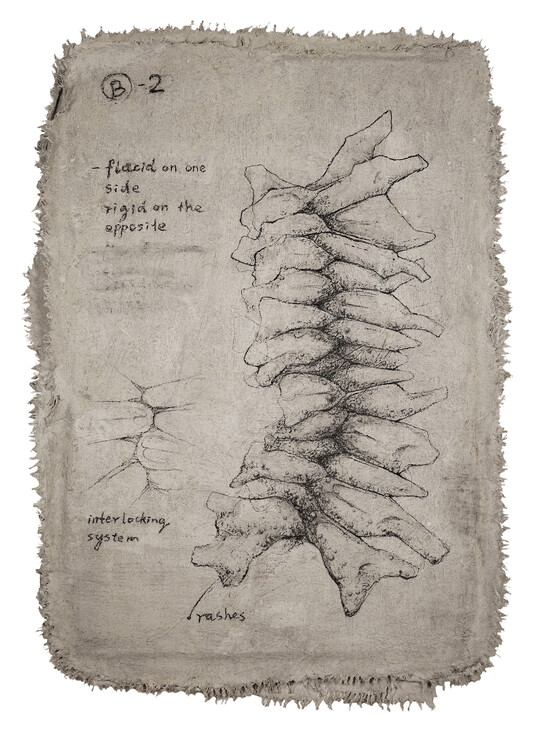 B-2
- flacid on one
side
rigid on the
opposite
interlocking
system
rashes